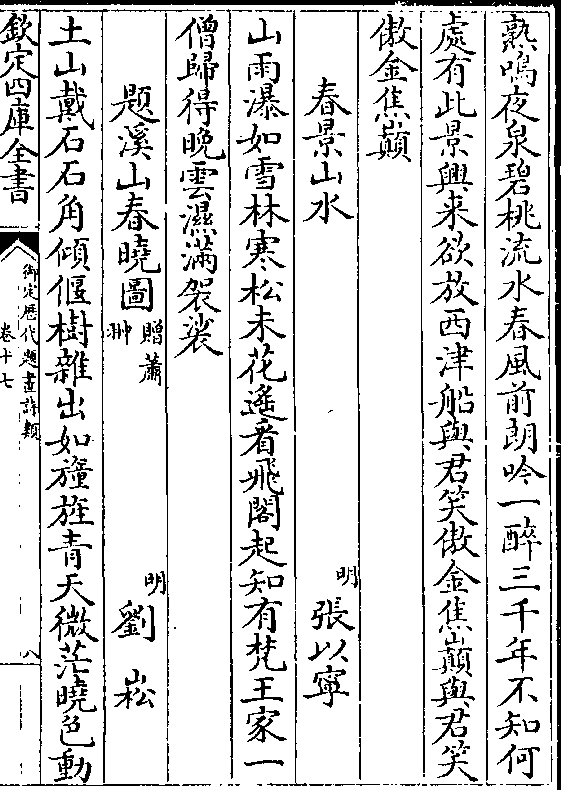 熟鳴夜泉碧桃流水春風前朗吟一醉三千年不知何
處有此景興来欲放西津船與君笑傲金焦巔與君笑
傲金焦巔
春景山水
明 張以寧
山雨瀑如雪林寒松未花遙看飛閣起知有梵王家一
僧歸得晚雲濕滿袈裟
題溪山春曉圖 贈蕭翀
明 劉崧
土山戴石石角傾偃樹雜出如旜旌青天微茫曉色動
欽定四庫全書
御定歷代題畫詩類
卷十七
八